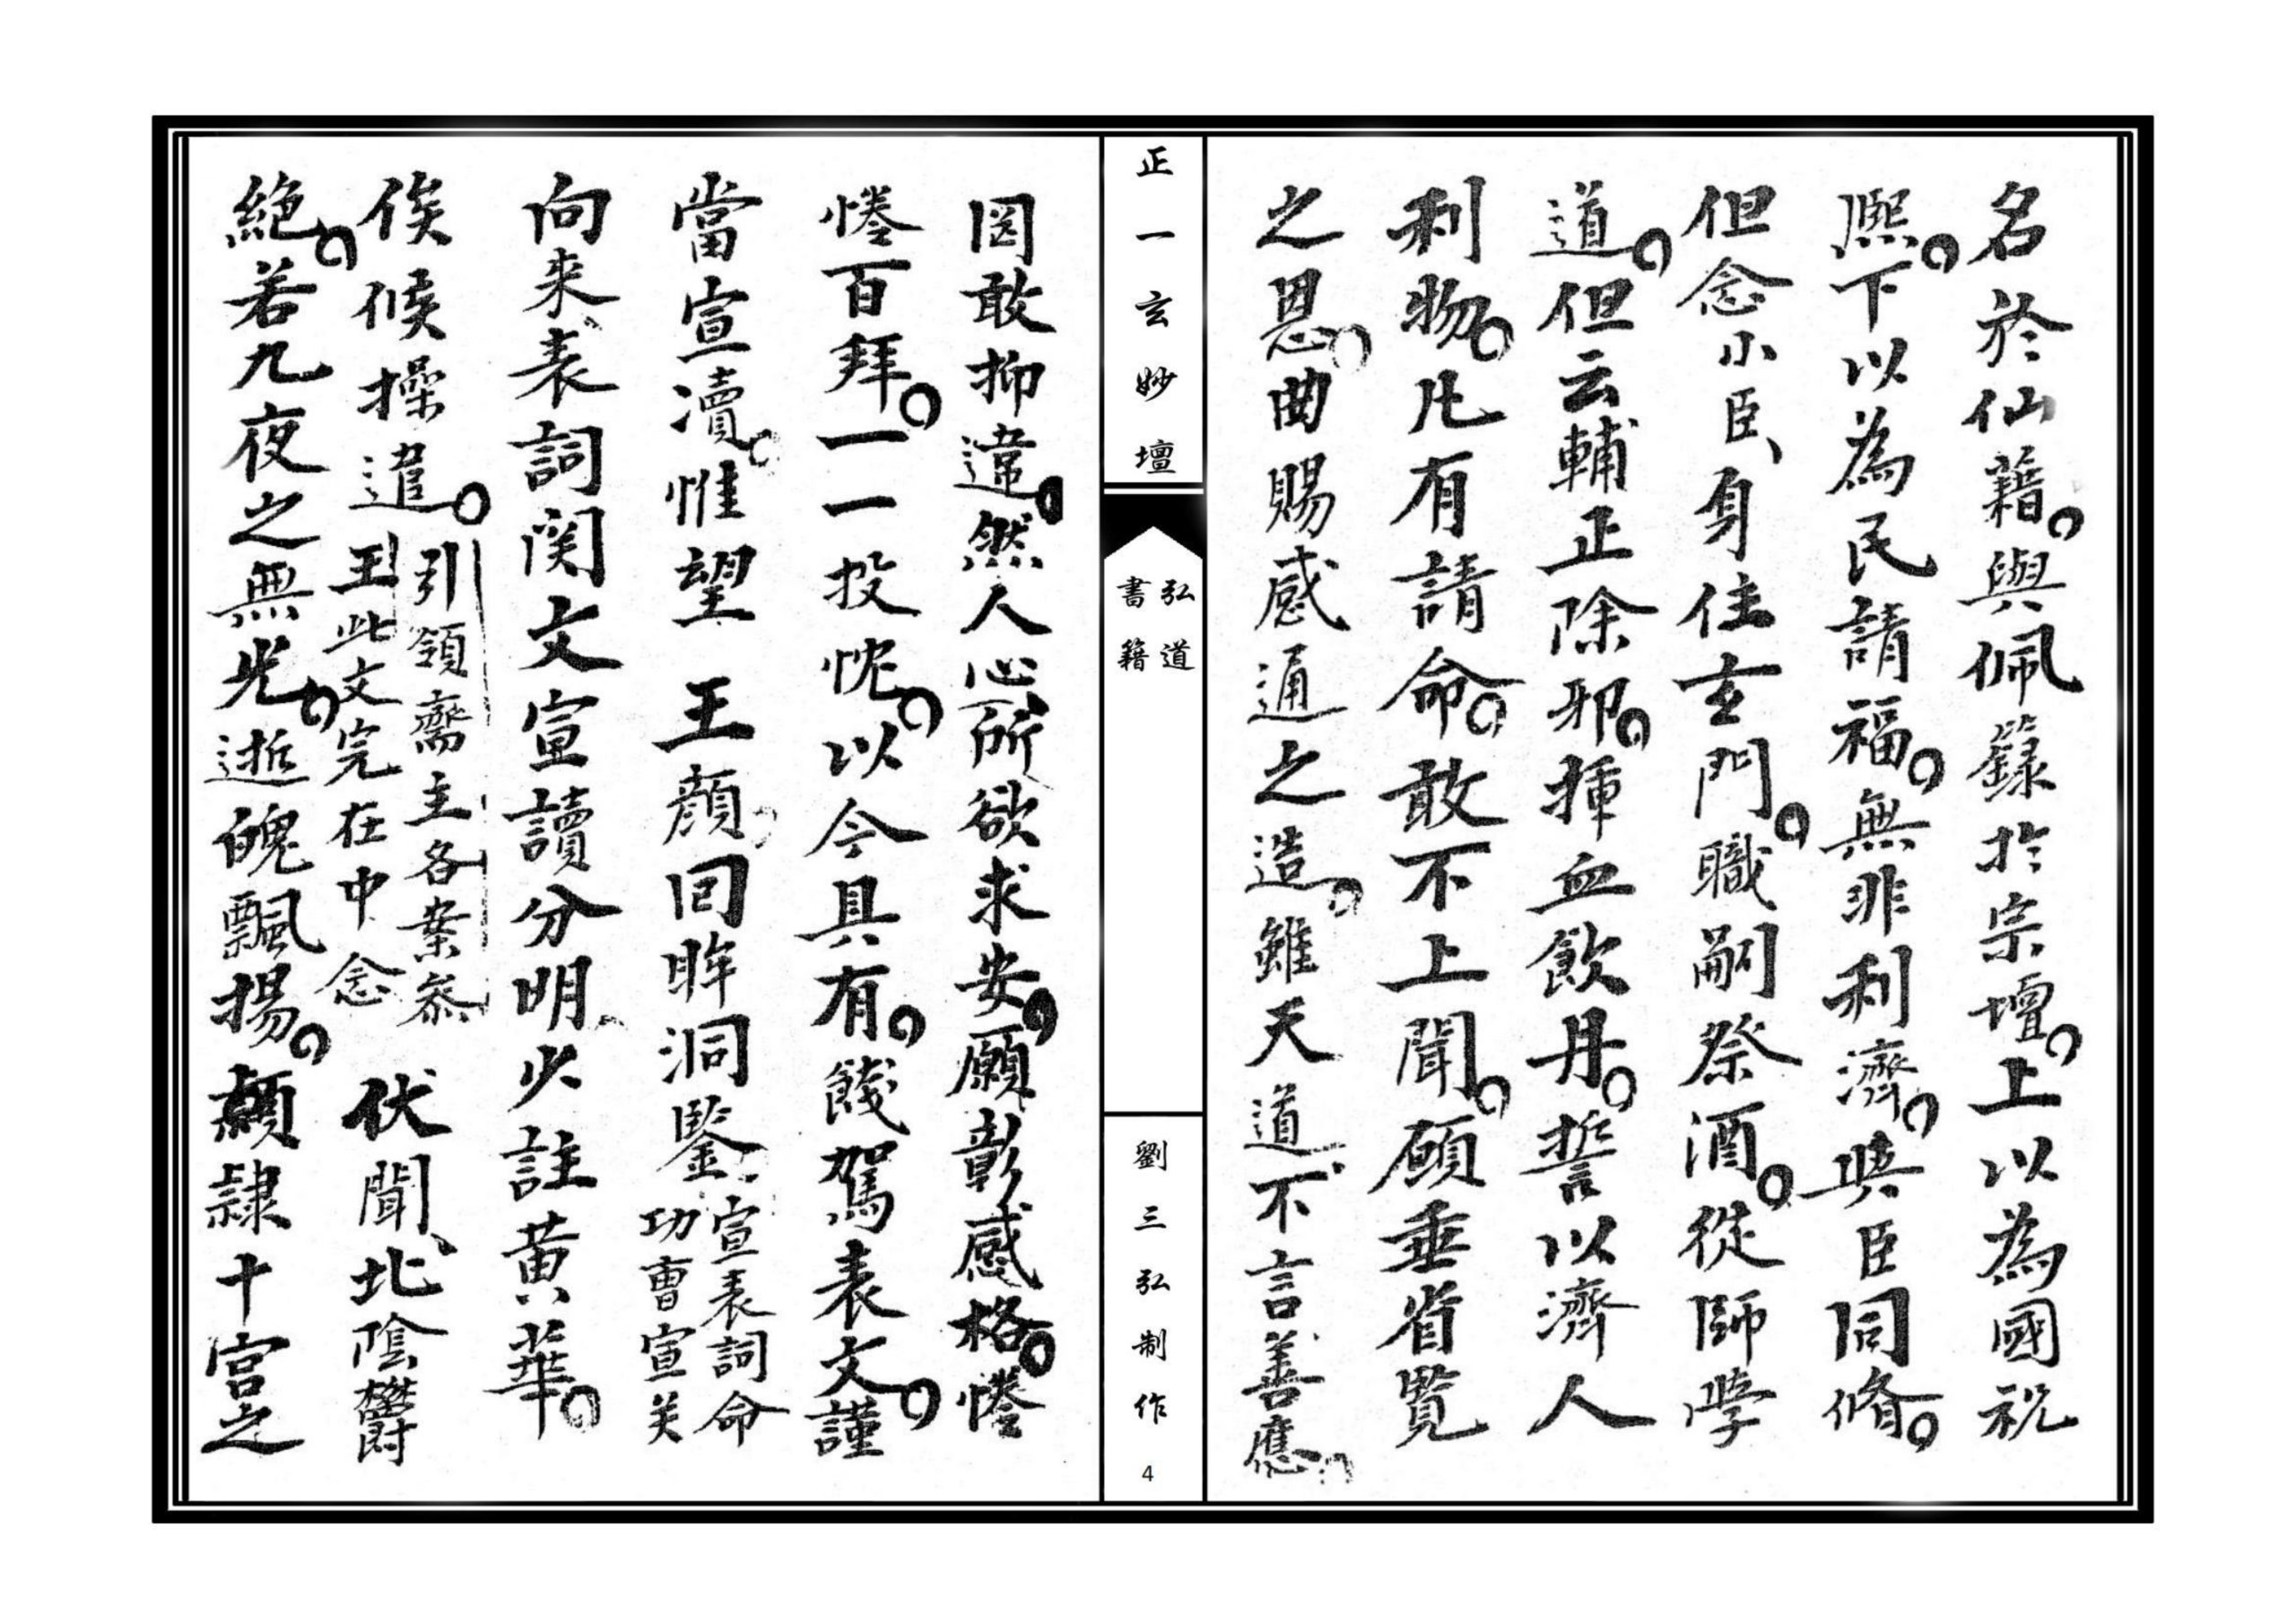 名於仙籍。與佩籙於宗壇。上以為國祝
熈。下以為民請福。無非利濟。與臣同脩。
但念小臣、身住玄門。職嗣祭酒。從師學
道。但云輔正除邪。揷血飲丹。誓以濟人
利物。凡有請命。敢不上聞。頋垂省覽
之恩。曲賜感通之造。雖天道不言善應。
正一玄妙壇
弘道
書籍
劉三弘制作
4
罔敢抑違。然人心所欲求安。願彰感格。惓
惓百拜。一一投忱。以今具有。餞駕表文。謹
當宣瀆。惟望 王顔。囘眸洞鑒。
宣表詞命
功曹宣关
向來表詞関文宣讀分明、火註黄華。
俟候操遣。
引領齋主各案叅
王此文完在中念
伏聞、北陰欝
絶。若九夜之無光。逝魄飄揚。頼隷十宫之